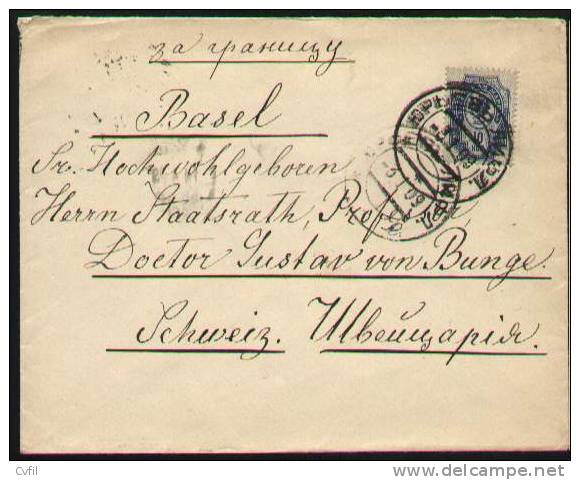 за границу
Basel
Sr. Hochwohlgeboren
Herrn Staatsrath, Professor
Doctor Gustav von Bunge.
Schweiz. Швейцарія.
10
Cvfil
www.delcampe.net